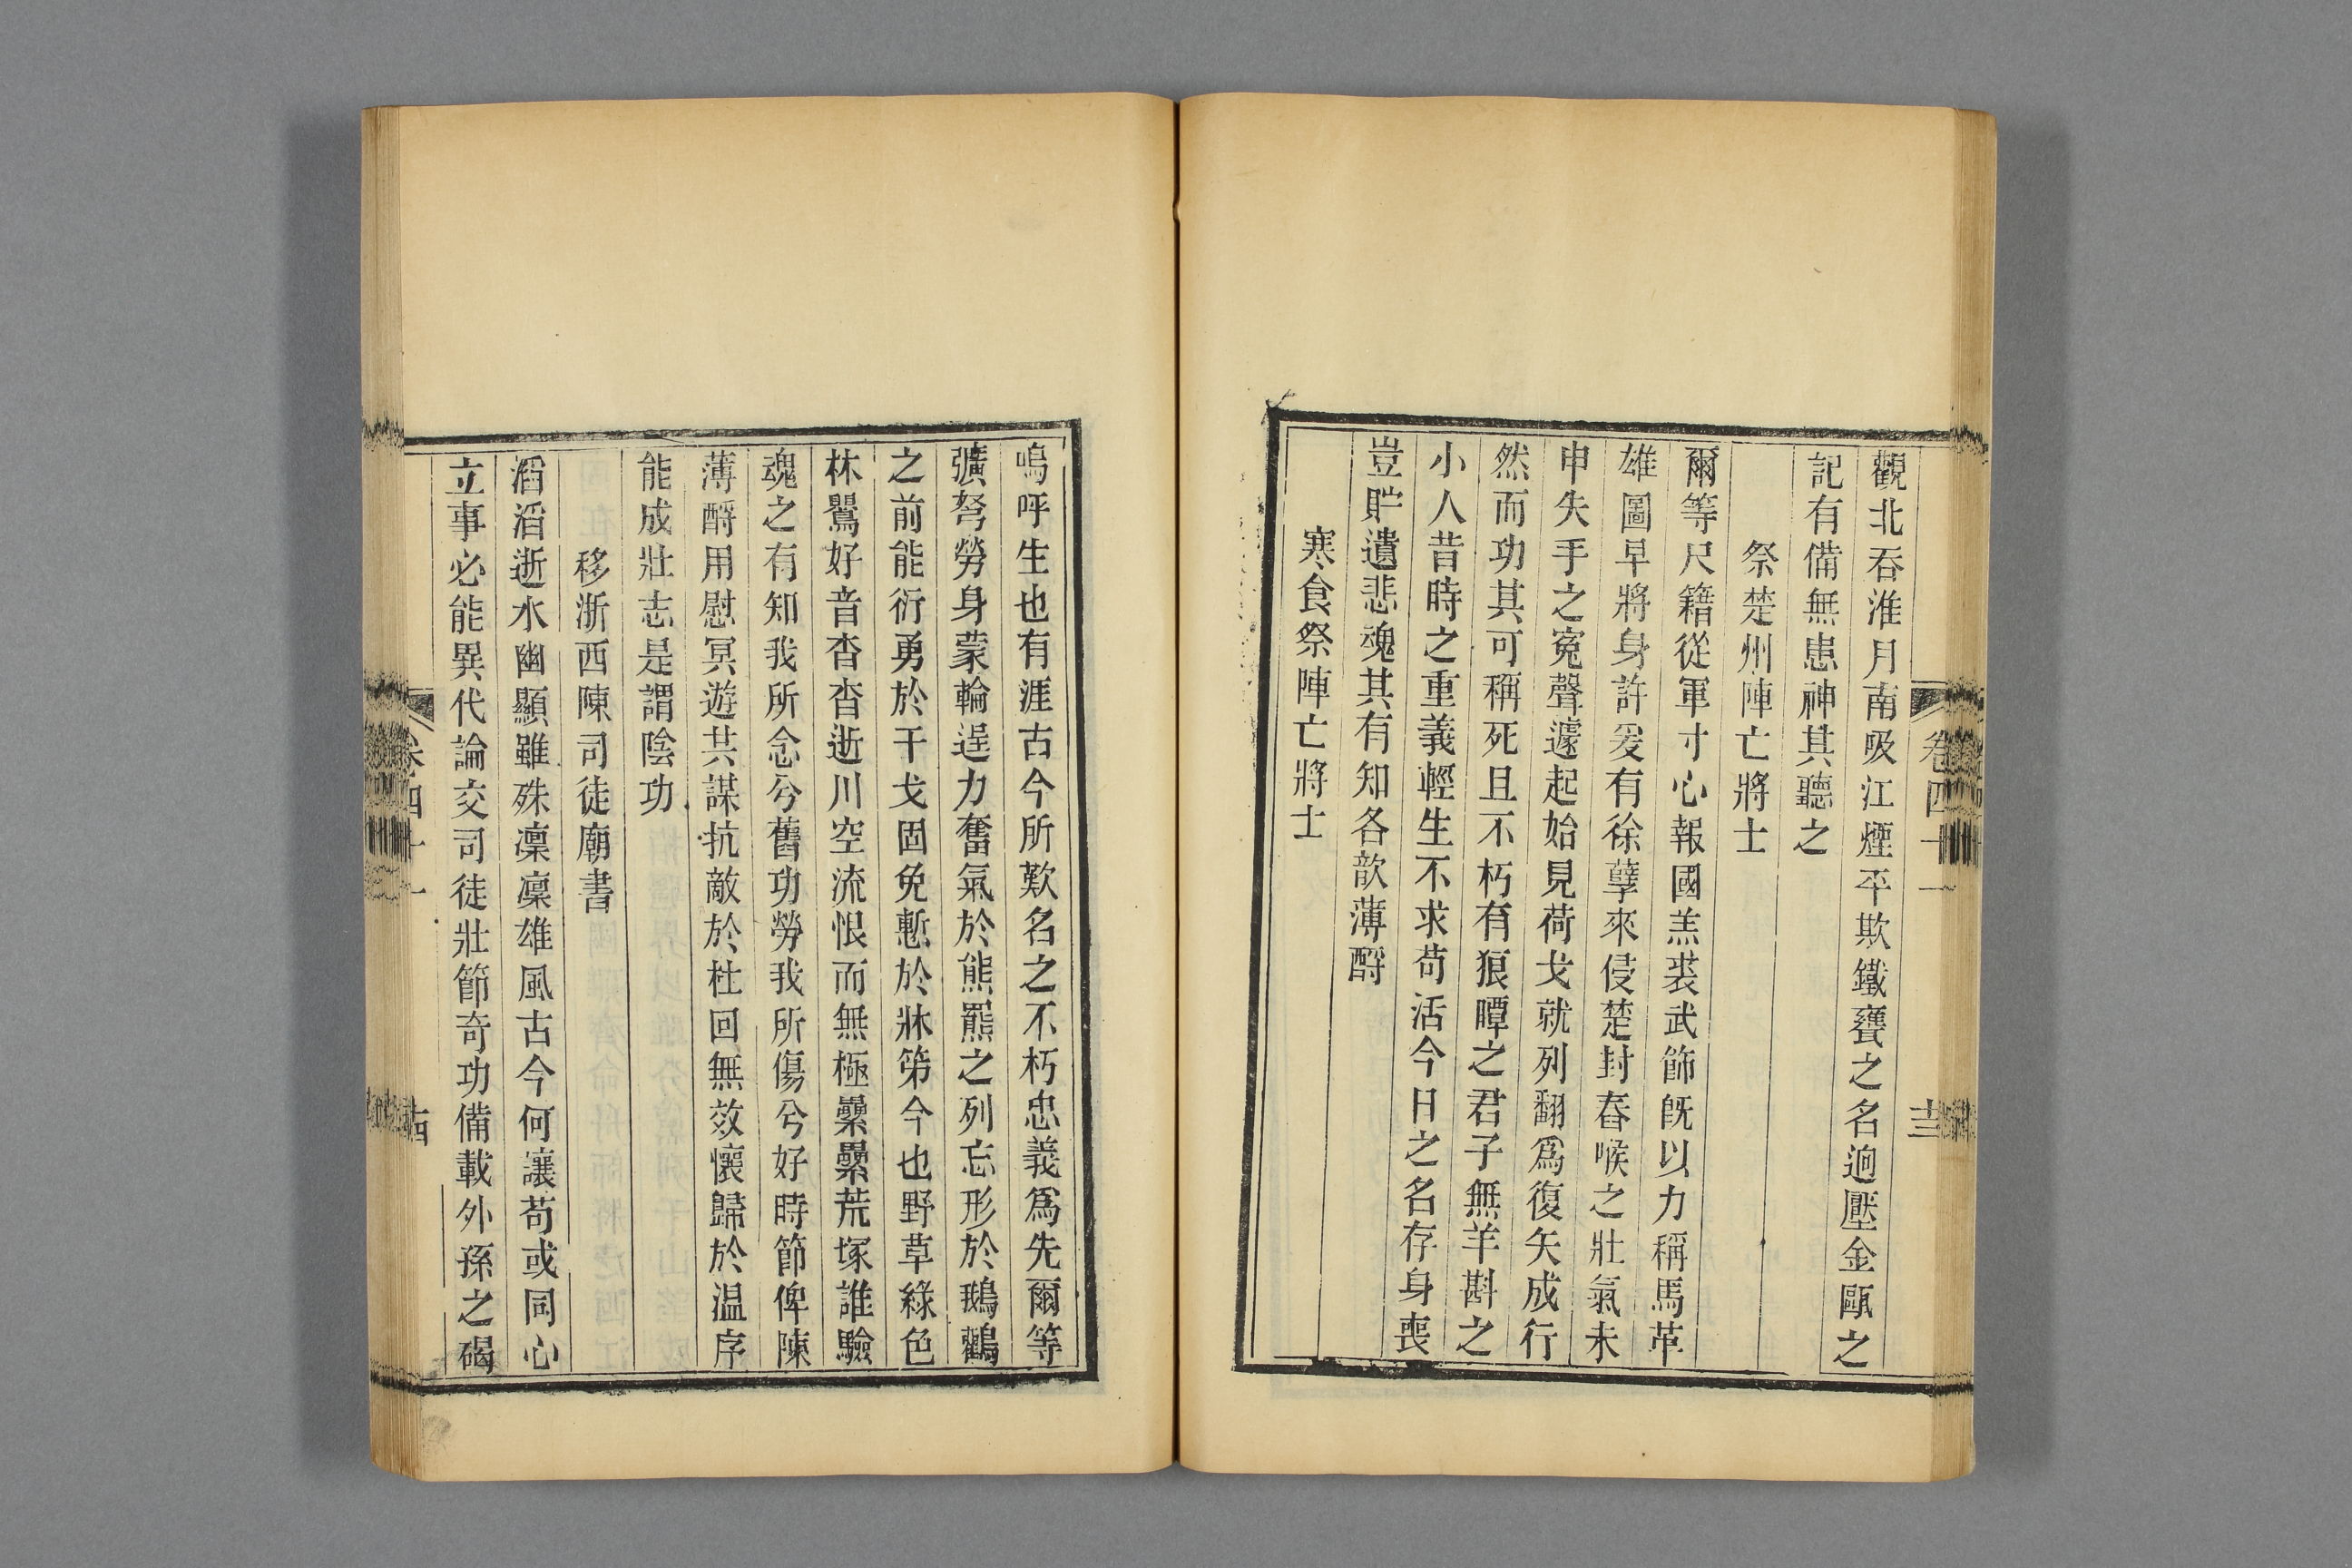 觀北吞淮月南吸江煙平欺鐵甕之名逈壓金甌之
記有備無患神其聽之
祭楚州陣亡將士
爾等尺籍從軍寸心報國羔裘武飾旣以力稱馬革
雄圖早將身許爰有徐孽來侵楚封舂喉之壯氣未
申失手之寃聲遽起始見荷戈就列翻爲復矢成行
然而功其可稱死且不朽有狼瞫之君子無羊斟之
小人昔時之重義輕生不求苟活今日之名存身喪
豈貯遺悲魂其有知各歆薄酹
寒食祭陣亡將士
卷四十一
十三
嗚呼生也有涯古今所歎名之不朽忠義爲先爾等
彍弩勞身蒙輪逞力奮氣於熊羆之列忘形於鵝鸛
之前能衒勇於干戈固免慙於牀第今也野草綠色
林鸎好音杳杳逝川空流恨而無極纍纍荒塚誰驗
魂之有知我所念兮舊功勞我所傷兮好時節俾陳
薄酹用慰冥遊共謀抗敵於杜回無效懷歸於温序
能成壯志是謂陰功
移浙西陳司徒廟書
滔滔逝水幽顯雖殊凛凛雄風古今何讓苟或同心
立事必能異代論交司徒壯節奇功備載外孫之碣
卷四十一
十四